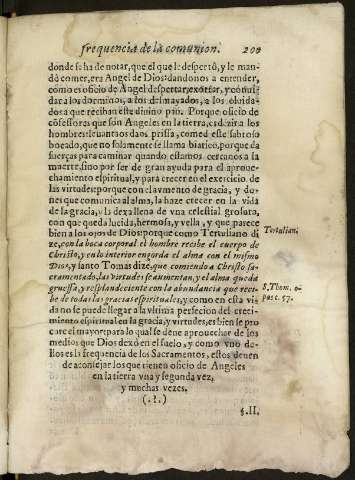 frequencia de la comunion. 200
donde se ha de notar, que el que le despertò, y le man-
dò comer, era Angel de Dios: dandonos a entender,
como es oficio de Angel despertar, exortar, y cõuidar
a los dormidos, a los desmayados, a los oluida-
dos a que reciban este diuino pão. Porque oficio de
cõfessores que son Angeles en la tierra, es dezir a los
hombres leuantaos daos prissa, comed este sabroso
bocado, que no solamente se llama biatico, porque da
fuerças para caminar quando estamos cercanos a la
muerte, sino por ser de gran ayuda para el aproue-
chamiento espiritual, y para crecer en el exercicio de
las virtudes: porque con el aumento de gracia, y do-
nes que comunica al alma, la haze crecer en la vida
de la gracia, y la dexa llena de vna celestial grosura,
con que queda lucida, hermosa, y vella, y que parece
bien a los ojos de Dios: porque como Tertuliano di
ze, con la boca corporal el hombre recibe el cuerpo de
Christo, y en lo interior engorda el alma con el mismo
Dios, y santo Tomas dize, que comiendo a Christo sa-
cramentado, las virtudes se aumentan, y el alma queda
gruessa, y resplandeciente con la abundancia que reci-
be de todas las gracias espirituales, y como en esta vi
da no se puede llegar a la vltima perfecion del creci-
miento espiritual en la gracia, y virtudes, es bien se pro
cure el mayor: para lo qual se deue aprouechar de los
medios que Dios dexò en el suelo, y como vno de-
llos es la frequencia de los Sacramentos, estos deuen
de aconsejar los que tienen oficio de Angeles
en la tierra vna y segunda vez,
y muchas vezes.
(.?.)
§.II.
Tertulian.
S. Thom. o-
pusc. 57.